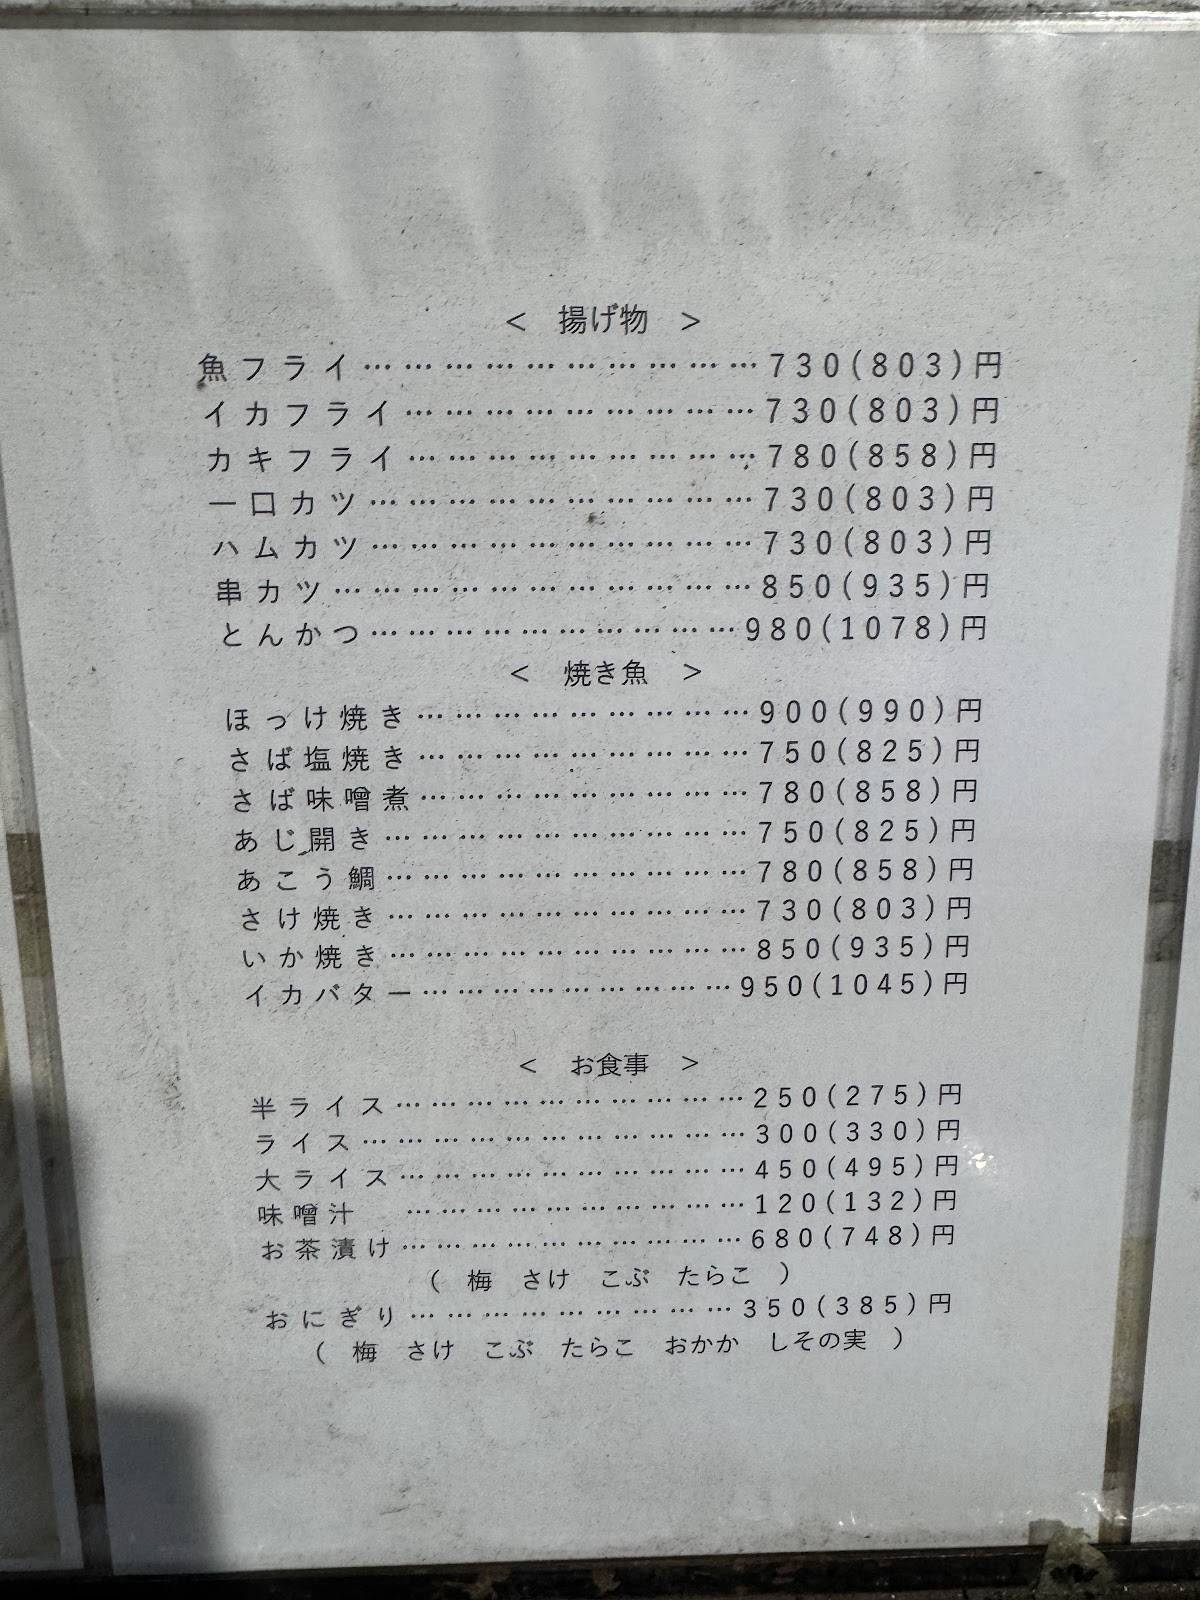 < 揚げ物 >
魚フライ………………………………730(803)円
イカフライ…………………………730(803)円
カキフライ…………………………780(858)円
一口カツ……………………………730(803)円
ハムカツ……………………………730(803)円
串カツ………………………………850(935)円
とんかつ……………………………980(1078)円
< 焼き魚 >
ほっけ焼き…………………………900(990)円
さば塩焼き…………………………750(825)円
さば味噌煮…………………………780(858)円
あじ開き……………………………750(825)円
あこう鯛……………………………780(858)円
さけ焼き……………………………730(803)円
いか焼き……………………………850(935)円
イカバター…………………………950(1045)円
< お食事 >
半ライス……………………………250(275)円
ライス………………………………300(330)円
大ライス……………………………450(495)円
味噌汁 ……………………………120(132)円
お茶漬け……………………………680(748)円
( 梅 さけ こぶ たらこ )
おにぎり……………………………350(385)円
( 梅 さけ こぶ たらこ おかか しその実 )